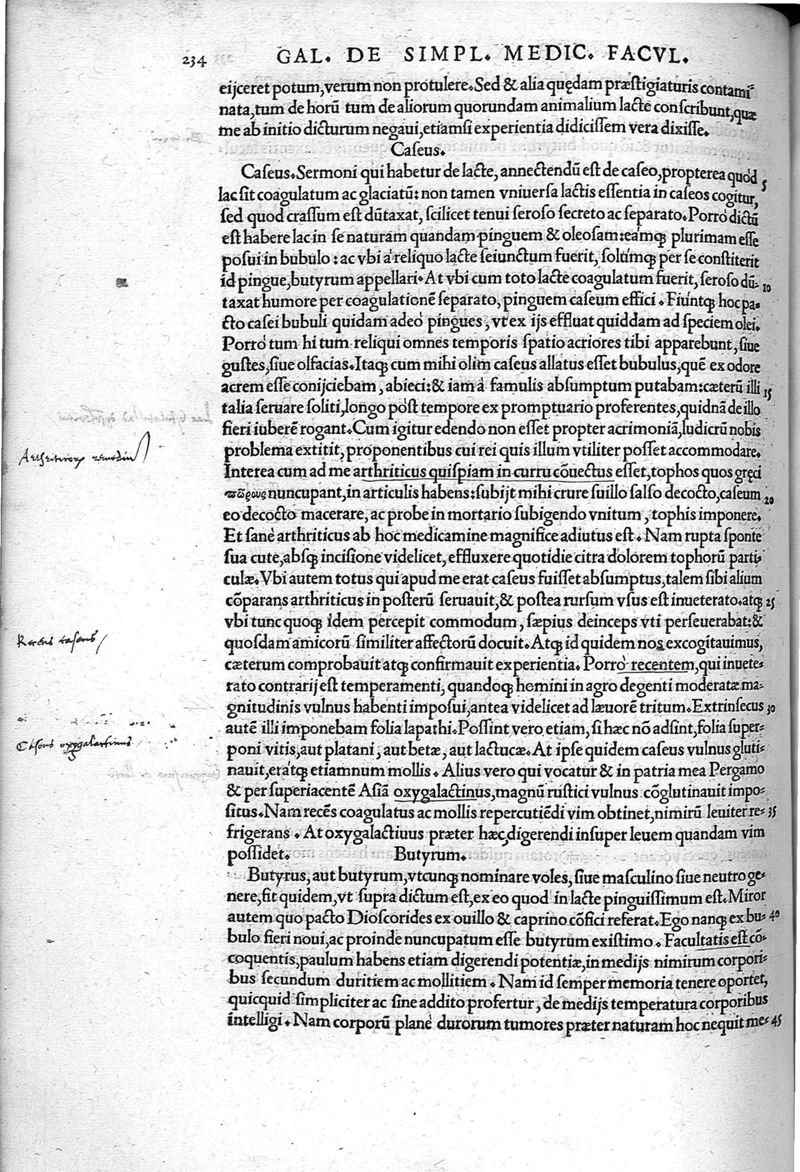 234 GAL. DE SIMPL. MEDIC. FACVL.
eijceret potum, verum non protulere. Sed & alia quędam præstigiaturis contami-
nata, tum de horũ tum de aliorum quorundam animalium lacte conscribunt, quæ
me ab initio dicturum negaui, etiamsi experientia didicissem vera dixisse.
Caseus.
Caseus. Sermoni qui habetur de lacte, annectendũ est de caseo, propterea quod 5
lac sit coagulatum ac glaciatũ: non tamen vniuersa lactis essentia in caseos cogitur,
sed quod crassum est dũtaxat, scilicet tenui seroso secreto ac separato. Porrò dictũ
est habere lac in se naturam quandam pinguem & oleosam: eamq; plurimam esse
posui in bubulo: ac vbi à reliquo lacte seiunctum fuerit, solumq; per se constiterit
id pingue, butyrum appellari. At vbi cum toto lacte coagulatum fuerit, seroso dũ- 10
taxat humore per coagulationẽ separato, pinguem caseum effici. Fiuntq; hoc pa-
cto casei bubuli quidam adeò pingues, vt ex ijs effluat quiddam ad speciem olei.
Porrò tum hi tum reliqui omnes temporis spatio acriores tibi apparebunt, siue
gustes, siue olfacias. Itaq; cum mihi olim caseus allatus esset bubulus, quẽ ex odore
acrem esse conijciebam, abieci: & iam à famulis absumptum putabam: cæterũ illi 15
talia seruare soliti, longo pòst tempore ex promptuario proferentes, quidnã de illo
fieri iuberẽ rogant. Cum igitur edendo non esset propter acrimoniã, ludicrũ nobis
problema extitit, proponentibus cui rei quis illum vtiliter posset accommodare.
Interea cum ad me arthriticus quispiam in curru cõuectus esset, tophos quos gręci
πώρους nuncupant, in articulis habens: subijt mihi crure suillo salso decocto, caseum 20
eo decocto macerare, ac probe in mortario subigendo vnitum, tophis imponere.
Et sanè arthriticus ab hoc medicamine magnifice adiutus est. Nam rupta sponte
sua cute, absq; incisione videlicet, effluxere quotidie citra dolorem tophorũ parti-
culæ. Vbi autem totus qui apud me erat caseus fuisset absumptus, talem sibi alium
cõparans arthriticus in posterũ seruauit, & postea rursum vsus est inueterato. atq; 25
vbi tunc quoq; idem percepit commodum, sæpius deinceps vti perseuerabat: &
quosdam amicorũ similiter affectorũ docuit. Atq; id quidem nos excogitauimus,
cæterum comprobauit atq; confirmauit experientia. Porrò recentem, qui inuete-
rato contrarij est temperamenti, quandoq; homini in agro degenti moderatæ ma-
gnitudinis vulnus habenti imposui, antea videlicet ad læuorẽ tritum. Extrinsecus 30
autẽ illi imponebam folia lapathi. Possint vero etiam, si hæc nõ adsint, folia super-
poni vitis, aut platani, aut betæ, aut lactucæ. At ipse quidem caseus vulnus gluti-
nauit, eratq; etiamnum mollis. Alius vero qui vocatur & in patria mea Pergamo
& per superiacentẽ Asiã oxygalactinus, magnũ rustici vulnus cõglutinauit impo-
situs. Nam recẽs coagulatus ac mollis repercutiẽdi vim obtinet, nimirũ leuiter re- 35
frigerans. At oxygalactinus præter hæc, digerendi insuper leuem quandam vim
possidet. Butyrum.
Butyrus, aut butyrum, vtcunq; nominare voles, siue masculino siue neutro ge-
nere, fit quidem, vt supra dictum est, ex eo quod in lacte pinguissimum est. Miror
autem quo pacto Dioscorides ex ouillo & caprino cõfici referat. Ego nanq; ex bu- 40
bulo fieri noui, ac proinde nuncupatum esse butyrum existimo. Facultatis est cõ-
coquentis, paulum habens etiam digerendi potentiæ, in medijs nimirum corpori-
bus secundum duritiem ac mollitiem. Nam id semper memoria tenere oportet,
quicquid simpliciter ac sine addito profertur, de medijs temperatura corporibus
intelligi. Nam corporũ planè durorum tumores præter naturam hoc nequit me- 45
Recens caseus
Caseus oxygalactinus